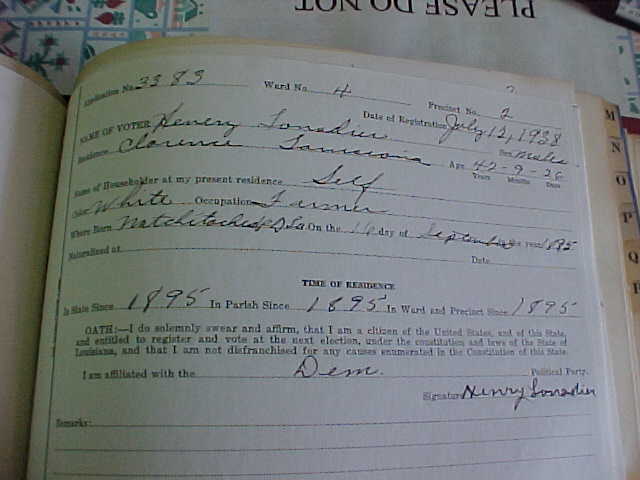 PLEASE DO NOT
Application No. 3383 Ward No. 4 Precinct No. 2
Date of Registration July 12, 1938
NAME OF VOTER Henery Lonadier Sex Male
Residence Clarence Louisiana Age 42-9-26
Years Months Days
Name of Householder at my present residence Self
Color White Occupation Farmer
Where Born Natchitoches La On the day of September year 1895
Naturalized at Date
TIME OF RESIDENCE
In State Since 1895 In Parish Since 1895 In Ward and Precinct Since 1895
OATH:—I do solemnly swear and affirm, that I am a citizen of the United States, and of this State,
and entitled to register and vote at the next election, under the constitution and laws of the State of
Louisiana, and that I am not disfranchised for any causes enumerated in the Constitution of this State.
I am affiliated with the Dem. Political Party.
Signature Henry Lonadier
Remarks:
M
N
O
P
Q